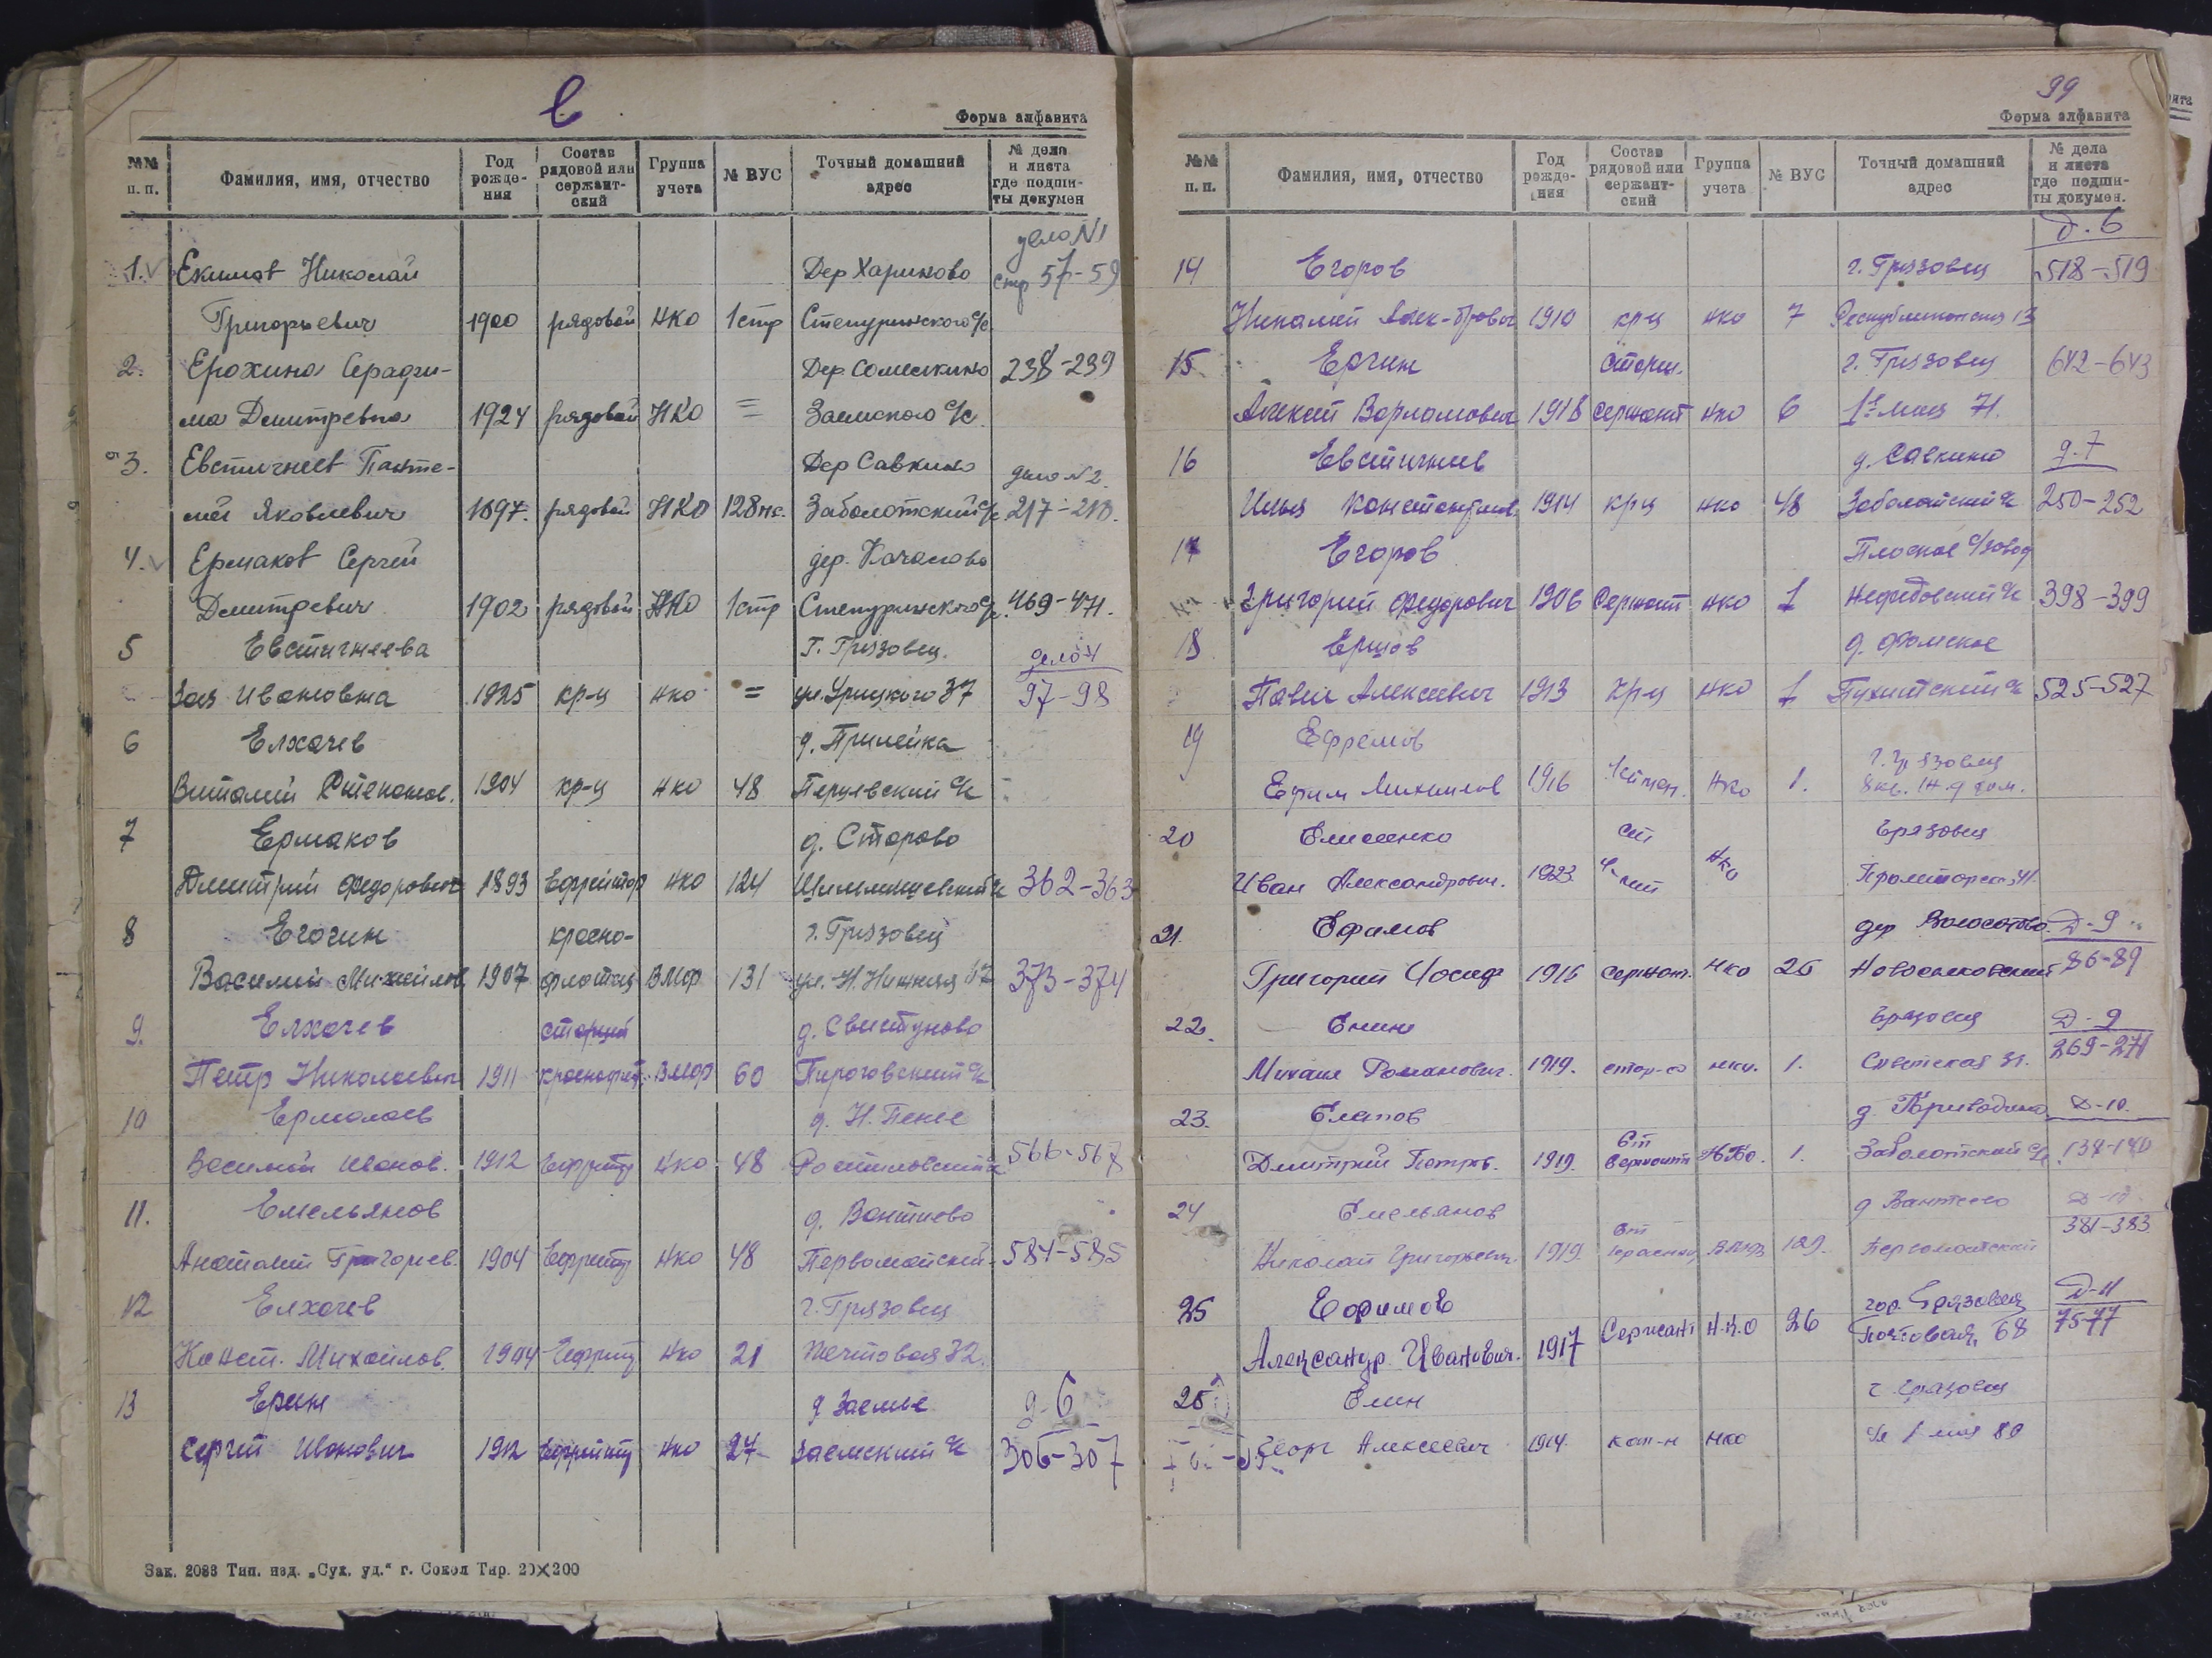 Е
Форма алфавита
№№ п. п. Фамилия, имя, отчество Год рожде-ния Состав рядовой или сержант-ский Группа учета № ВУС Точный домашний адрес № дела и листа где подши-ты докумен
дело №1
1. Екимов Николай Дер Хариново стр 57-59
Григорьевич 1900 рядовой НКО 1стр Степуринского с/с
2. Ерохина Серафи- Дер Сомелкино 238-239
ма Дмитревна 1924 рядовой НКО = Заемского с/с.
3. Евстигнеев Панте- Дер Савкино дело №2.
лей Яковлевич 1897. рядовой НКО 128нс. Заболотский с/с 217-218.
4. Ермаков Сергей дер.
Дмитревич 1902 рядовой НКО 1стр Степуринского с/с. 469-471.
5 Евстигнеева Г. Грязовец. дело 4
Зоя Ивановна 1925 кр-ц нко = ул. Урицкого 37 97-98
6 Елхачев д. Прилейка
Виталий Степанов. 1904 кр-ц нко 48 Перцевский с/с
7 Ермаков д. Старово
Дмитрий Федорович 1893 Ефрейтор нко 124 362-363
8 Егогин красно- г. Грязовец
Василий Михайлов 1907 флотец ВМФ 131 ул. Н. Нижняя 47 373-374
9. Елхачев старший д. Свистуново
Петр Николаевич 1911 краснофлот. ВМФ 60 Пироговский с/с
10 Ермолаев д. Н. Пенье
Василий Иванов. 1912 Ефрейтор нко 48 Ростиловский с/с 566-567
11. Емельянов д. Вантиево
Анатолий Григорьев. 1904 Ефрейтор нко 48 Первомайский. 584-585
12 Елхачев г. Грязовец
Конст. Михайлов. 1904 Ефрейт нко 21 Почтовая 32.
13 Ерин д Заемье д-6
Сергей Иванович 1912 Ефрейтор нко 27 Заемский с/с 306-307
Зак. 2088 Тип. изд. „Сух. уд.“ г. Сокол Тир. 20×200
99
Форма алфавита
№№ п. п. Фамилия, имя, отчество Год рожде-ния Состав рядовой или сержант-ский Группа учета № ВУС Точный домашний адрес № дела и листа где подши-ты докумен.
д. 6
14 Егоров г. Грязовец 518-519
Николай Алек-дрович 1910 кр-ц нко 7 Республиканская 13
15 Ергин старш. г. Грязовец 642-643
Алексей Варламович 1918 сержант нко 6 1е мая 71.
16 Евстигнеев д. Савкино д. 7
Илья Константинов. 1914 кр-ц нко 48 Заболотский с/с 250-252
17 Егоров Плоское с/завод
Григорий Федорович 1906 Сержант нко 1 Нефедовский с/с 398-399
18 Ершов д. Фомское
Павел Алексеевич 1913 кр-ц нко 1 Пухитский с/с 525-527
19 Ефремов г. Грязовец
Ефим Михайлов 1916 НКО 1. 8 кв. Ж.д дом.
20 Елисеенко ст Грязовец
Иван Александрович. 1923 нко Пролетарская 41.
21. Ефимов дер Волосатово Д-9
Григорий Иосиф 1915 сержант. нко 26 Новоселковский 86-89
22. Енин Грязовец Д-9
Михаил Романович. 1919. нко. 1. Советская 269-271
23. Елапов д. Приводино Д-10.
Дмитрий Петров. 1919. Ст Сержант НКО. 1. Заболотский с/с. 137-140
24 Емельянов д Вантеево Д-10
Николай Григорьевич. 1919. ст ВМФ 129. Первомайский 381-383
25 Ефимов гор. Грязовец Д-11
Александр Иванович. 1917 Сержант Н.К.О 26 Почтовая, 68 75-77
26 Елин г. Грязовец
Георг Алексеевич 1914 нко ул 1 мая 80